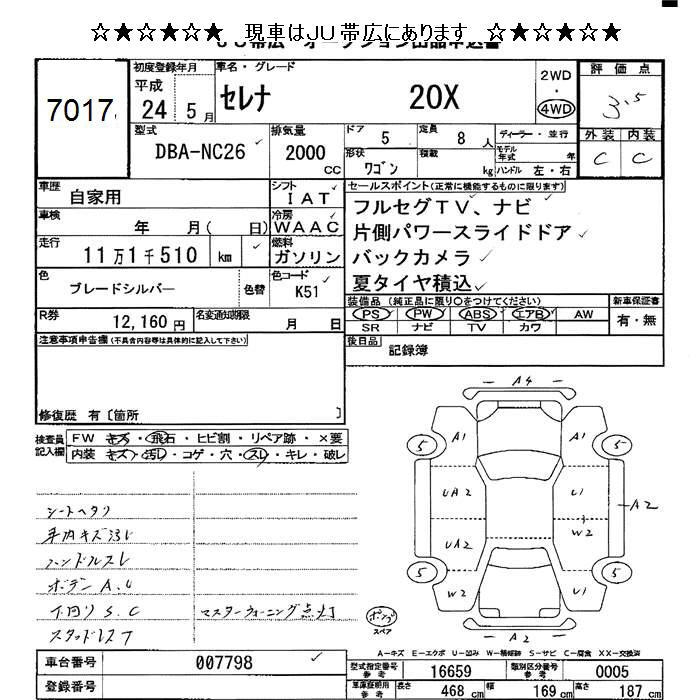 ☆★☆★☆★☆ 現車はJU帯広にあります ☆★☆★☆★☆
JU帯広 オークション出品申込書
7017
初度登録年月
平成
24 5月
車名・グレード
セレナ 20X
2WD
・
4WD
評価点
3.5
外装 内装
C C
型式
DBA-NC26
排気量
2000
CC
ドア 5
定員 8人
形状 ワゴン
積載 kg
ディーラー・並行
モデル年式 年
ハンドル 左・右
車歴 自家用
シフト IAT
車検 年 月( 日)
冷房 WAAC
走行 11万1千510 km
燃料 ガソリン
色 ブレードシルバー
色替
色コード K51
R券 12,160円
名変通知期限 月 日
セールスポイント(正常に機能するものに限ります)
フルセグTV、ナビ
片側パワースライドドア
バックカメラ
夏タイヤ積込
装備品(純正品に限り○をつけてください)
PS PW ABS エアB AW
SR ナビ TV カワ
新車保証書
有・無
後日品 記録簿
注意事項申告欄(不具合内容等は具体的に記入して下さい)
修復歴 有〔箇所 〕
検査員記入欄
FW キズ・飛石・ヒビ割・リペア跡・×要
内装 キズ・汚レ・コゲ・穴・スレ・キレ・破レ
シートヘタリ
車内キズ汚レ
ハンドルスレ
ボデーA.U
下回りS.C マスターウォーニング点灯
スタッドレス7
A4
5 A1 A1 5
UA2 U1
A2
W2
UA2 U1
5 W2 W2 5
A2
パンク
スペア
A-キズ E-エクボ U-凹み W-補修跡 S-サビ C-腐食 XX-交換済
車台番号 007798
登録番号
型式指定番号参考 16659
類別区分番号参考 0005
車庫証明用参考 長さ 468cm 幅 169cm 高さ 187cm